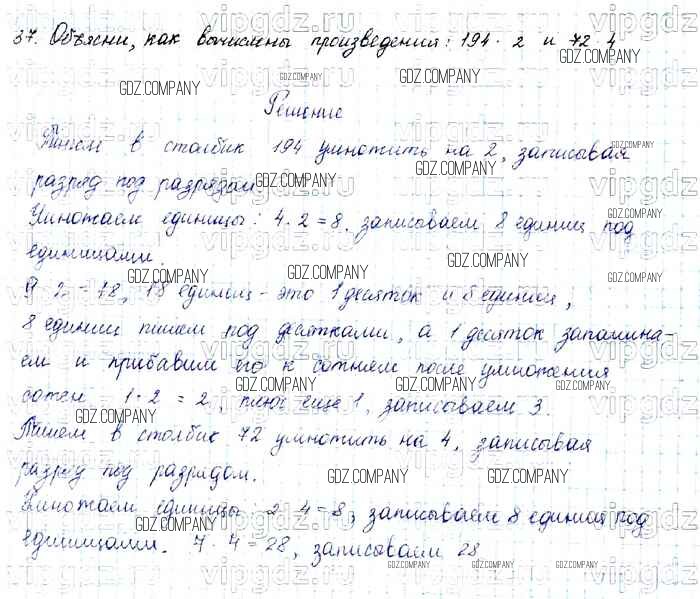 37. Объясни, как вычислены произведения: 194 · 2 и 72 4
Решение
Пишем в столбик 194 умножить на 2, записывая
разряд под разрядом
Умножаем единицы: 4 · 2 = 8, записываем 8 единиц под
единицами.
9 2 = 18, 18 единиц - это 1 десяток и 8 единиц,
8 единиц пишем под десятками, а 1 десяток запомина-
ем и прибавим его к сотням после умножения
сотен 1 · 2 = 2, плюс еще 1, записываем 3.
Пишем в столбик 72 умножить на 4, записывая
разряд под разрядом.
Умножаем единицы 2 4 = 8, записываем 8 единиц под
единицами. 7 · 4 = 28, записываем 28
GDZ.COMPANY
vipgdz.ru